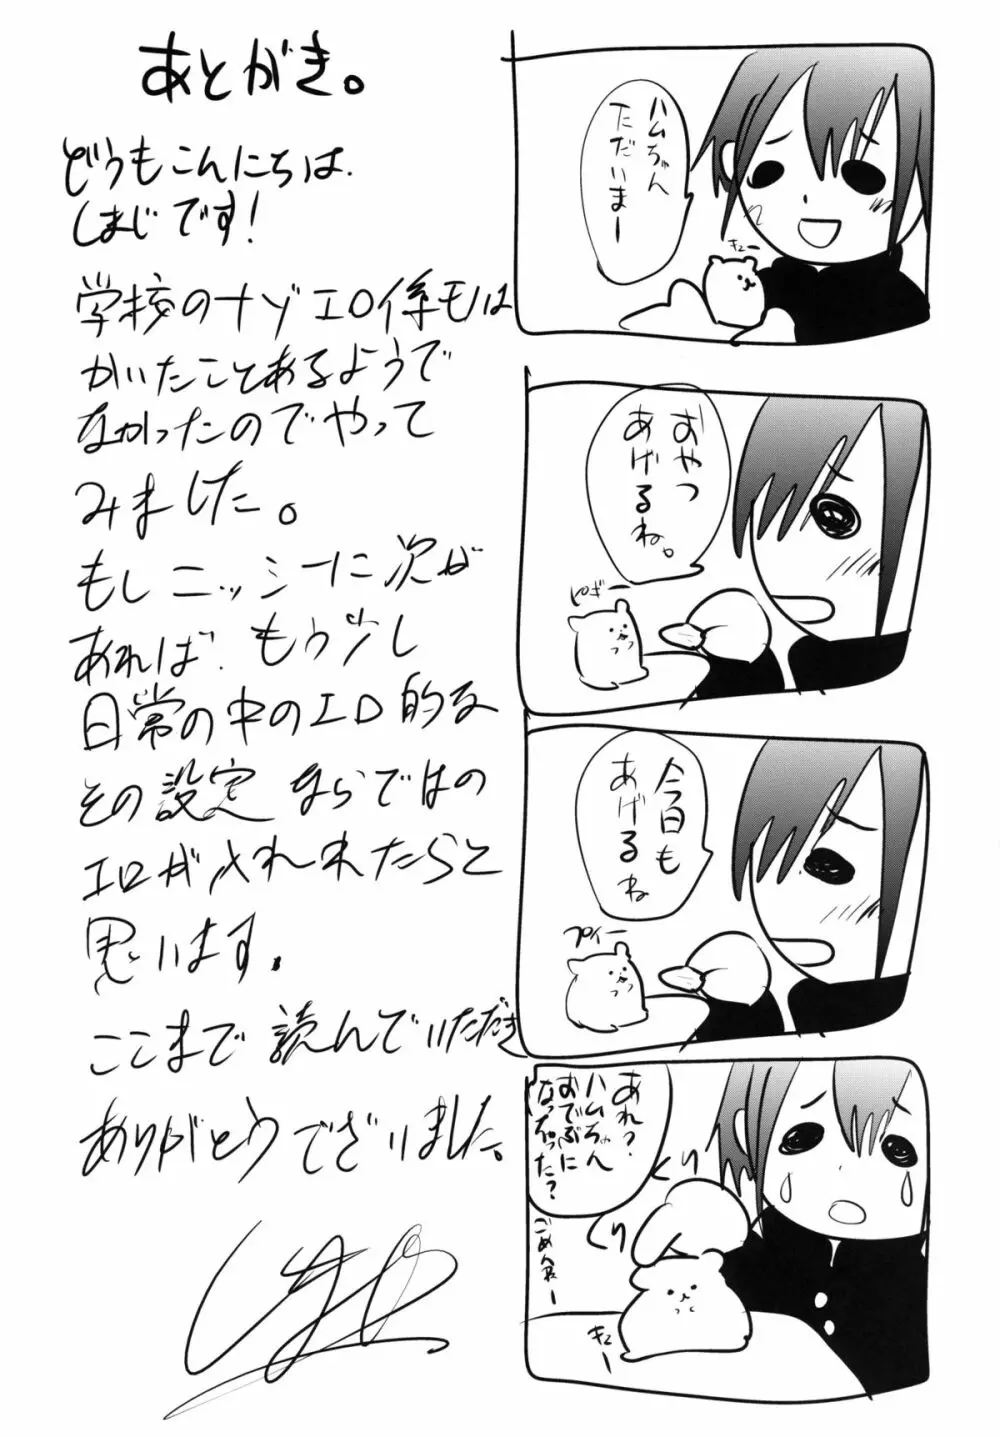 あとがき。
どうもこんにちは
しまじです!
学校のナゾエロ係モノは
かいたことあるようで
なかったのでやって
みました。
もしニッシーに次が
あれば もう少し
日常の中のエロ的な
その設定ならではの
エロが入れれたらと
思います。
ここまで読んでいただき
ありがとうございました。
ハムちゃん
ただいまー
キュー
おやつ
あげるね。
ピギー
今日も
あげるね
プイー
あれ?
ハムちゃん
おでぶに
なっちゃった?
くり
くり
ごめんねー
キュー